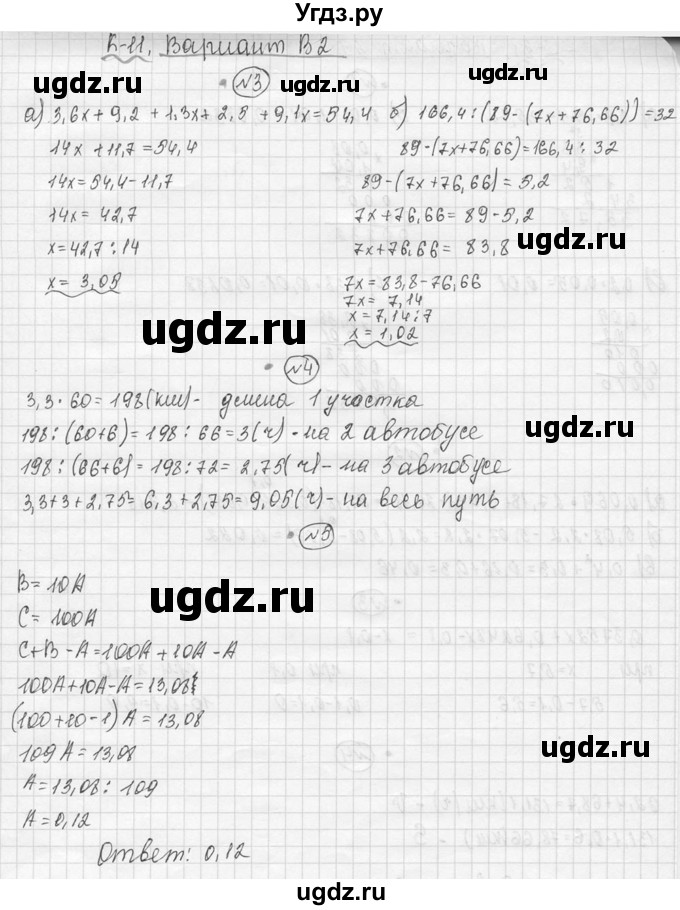 Угдз.ру
К-11, Вариант В2
ugdz.ru ugdz.ru ugdz.ru
№3
а) 3,6x + 9,2 + 1,3x + 2,5 + 9,1x = 54,4 б) 166,4 : (89 - (7x + 76,66)) = 32
14x + 11,7 = 54,4 89 - (7x + 76,66) = 166,4 : 32
14x = 54,4 - 11,7 89 - (7x + 76,66) = 5,2
14x = 42,7 7x + 76,66 = 89 - 5,2
x = 42,7 : 14 7x + 76,66 = 83,8
ugdz.ru
x = 3,05 7x = 83,8 - 76,66
7x = 7,14
x = 7,14 : 7
x = 1,02
ugdz.ru ugdz.ru
№4
3,3 · 60 = 198 (км) - длина 1 участка
198 : (60+6) = 198 : 66 = 3 (ч) - на 2 автобусе
198 : (66+6) = 198 : 72 = 2,75 (ч) - на 3 автобусе
3,3 + 3 + 2,75 = 6,3 + 2,75 = 9,05 (ч) - на весь путь
№5
ugdz.ru ugdz.ru
B = 10A
C = 100A
C + B - A = 100A + 10A - A
100A + 10A - A = 13,08
(100 + 10 - 1) A = 13,08
109 A = 13,08
A = 13,08 : 109
A = 0,12
ugdz.ru ugdz.ru
Ответ: 0,12
ugdz.ru